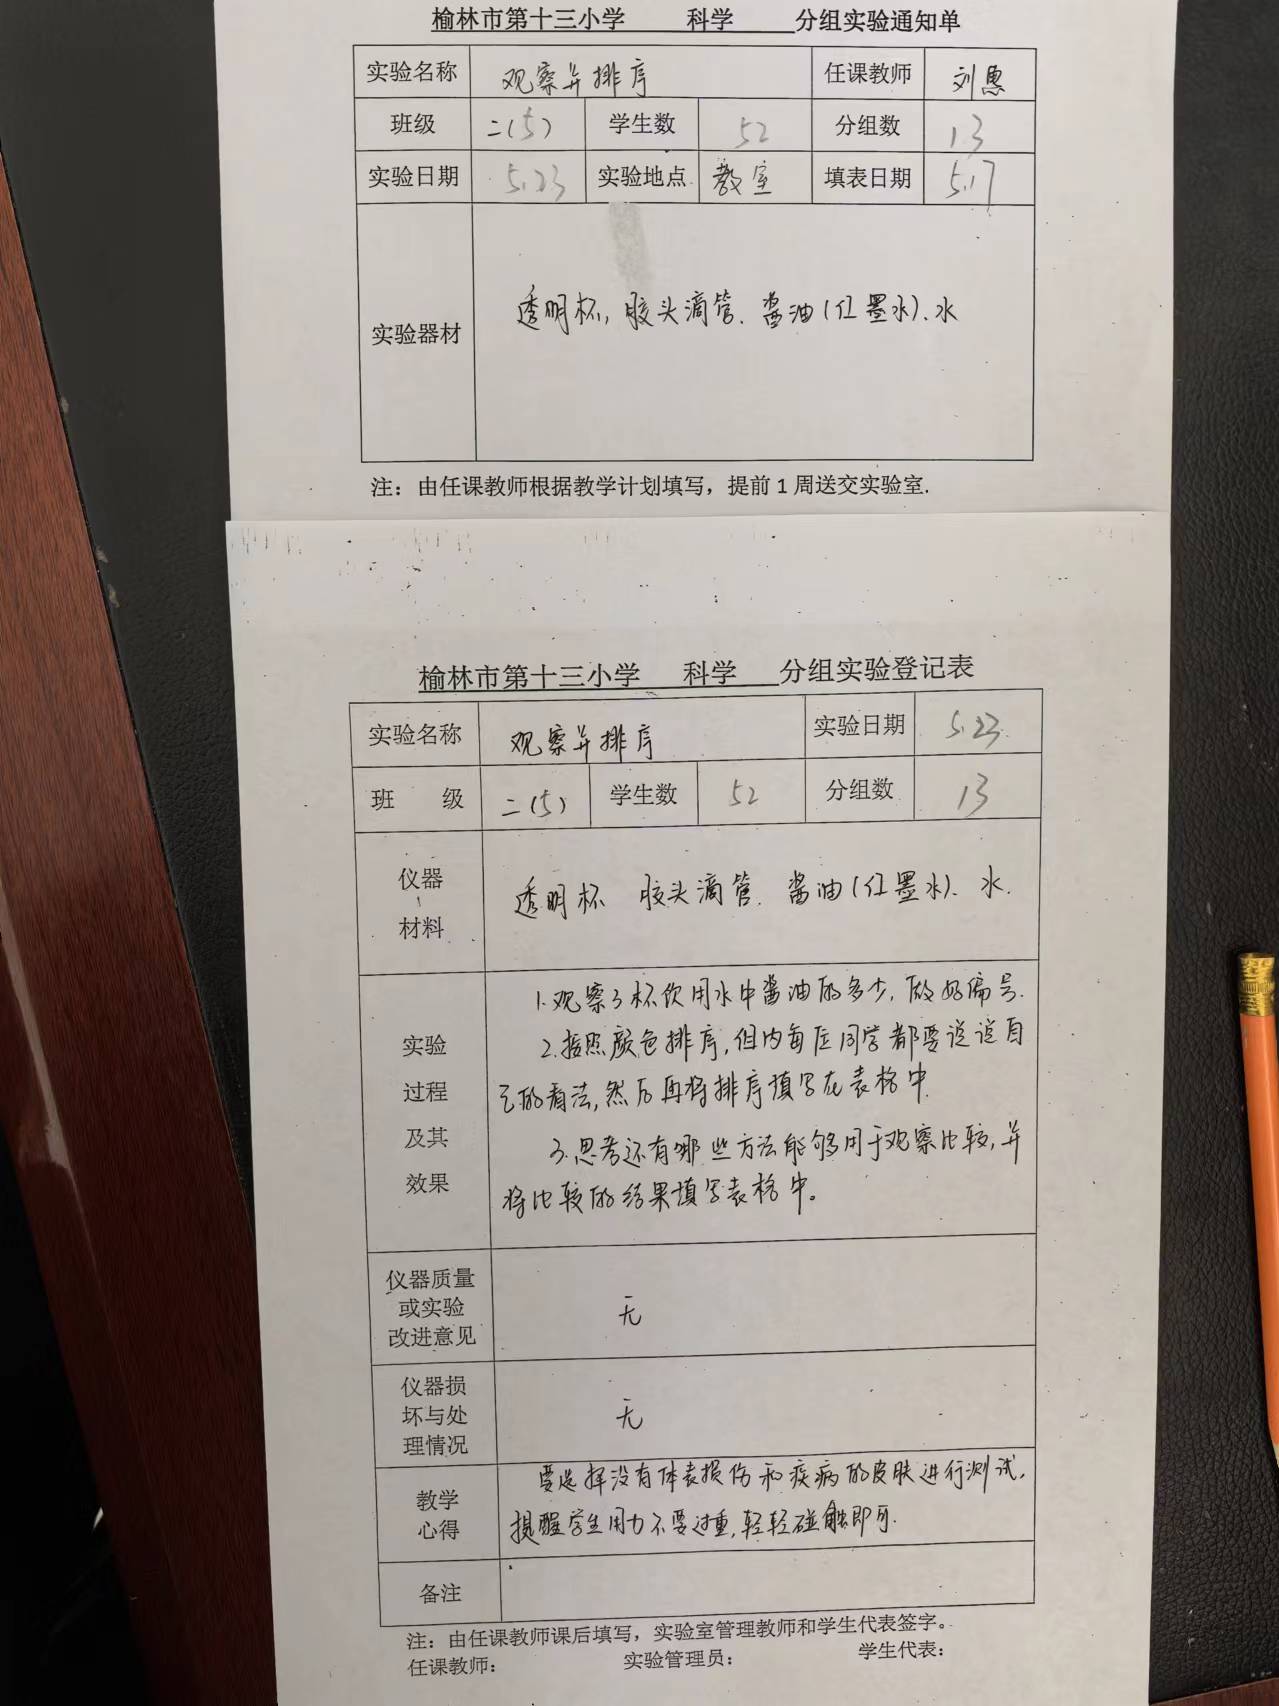 榆林市第十三小学 科学 分组实验通知单
实验名称 观察并排序 任课教师 刘恩
班级 二(5) 学生数 52 分组数 13
实验日期 5.23 实验地点 教室 填表日期 5.17
实验器材 透明杯, 胶头滴管. 酱油(红墨水)、水
注：由任课教师根据教学计划填写，提前1周送交实验室.
榆林市第十三小学 科学 分组实验登记表
实验名称 观察并排序 实验日期 5.23
班 级 二(5) 学生数 52 分组数 13
仪器
材料
透明杯 胶头滴管. 酱油(红墨水)、水.
实验
过程
及其
效果
1.观察3杯饮用水中酱油的多少, 做好编号.
2.按照颜色排序,组内每位同学都要说说自
己的看法,然后再将排序填写在表格中.
3.思考还有哪些方法能够用于观察比较,并
将比较的结果填写表格中。
仪器质量
或实验
改进意见
无
仪器损
坏与处
理情况
无
教学
心得
要选择没有体表损伤和疾病的皮肤进行测试.
提醒学生用力不要过重,轻轻碰触即可.
备注
注：由任课教师课后填写，实验室管理教师和学生代表签字。
任课教师： 实验管理员： 学生代表：